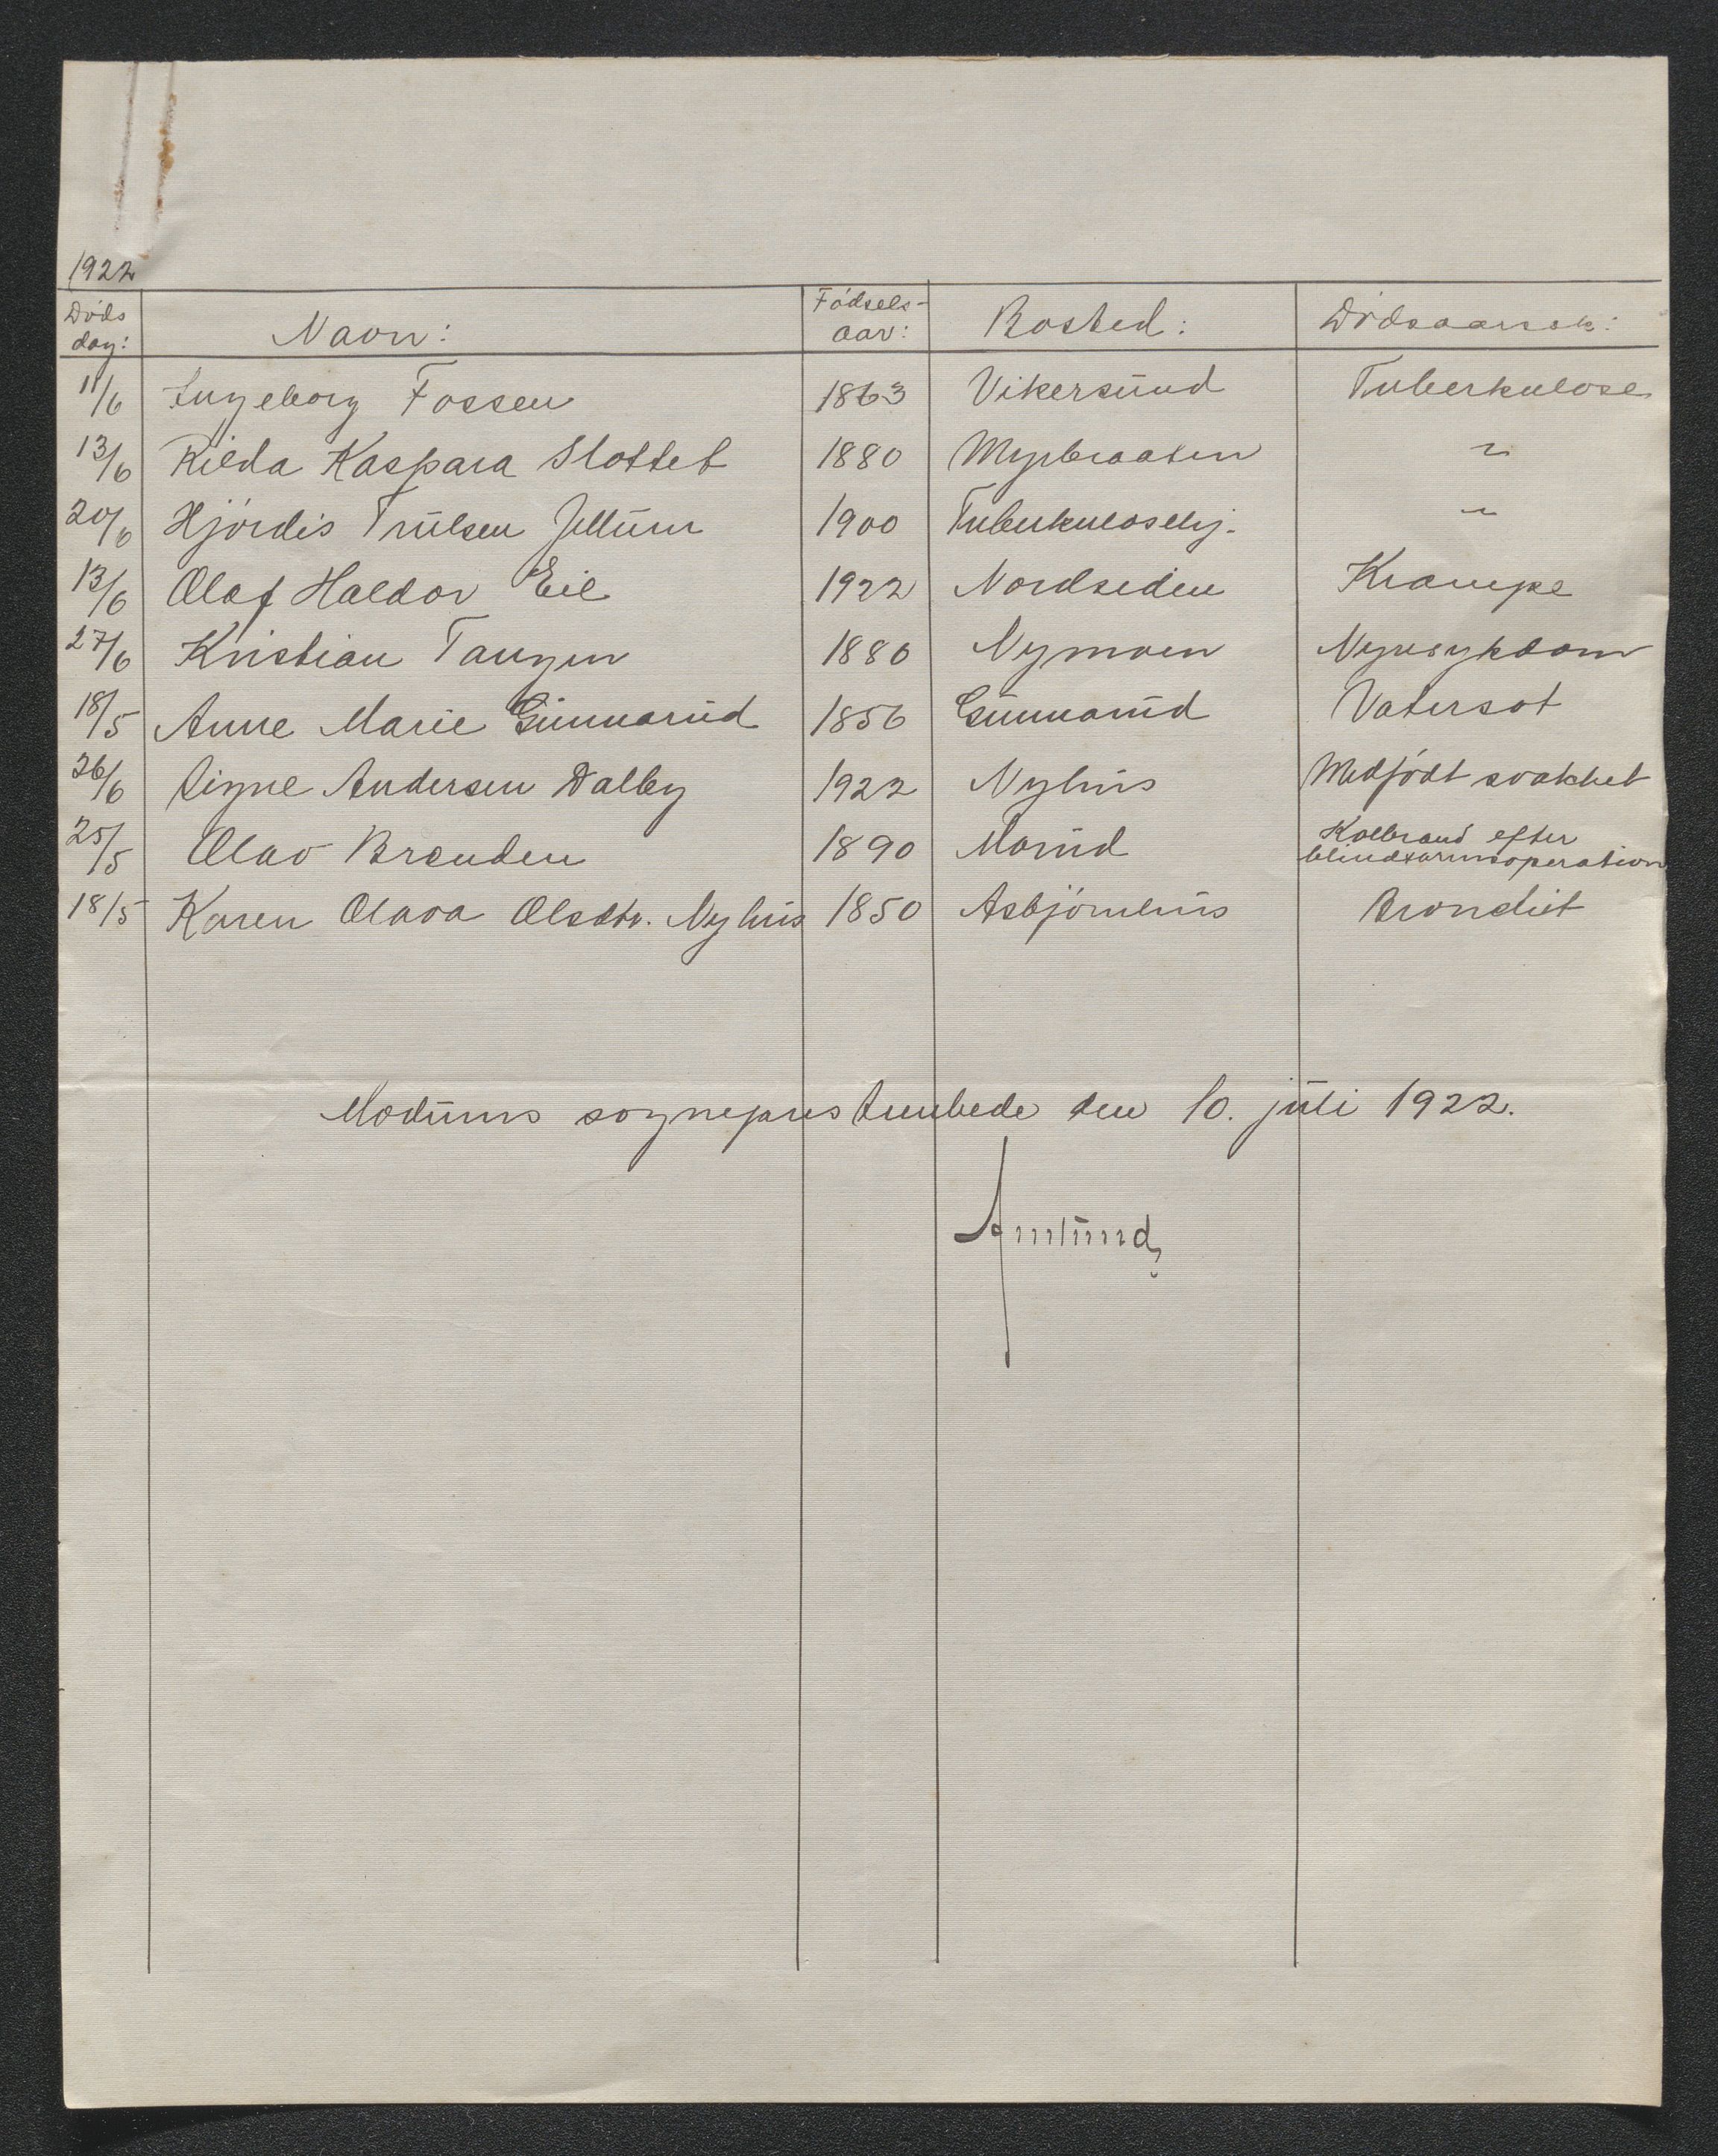 1922
Döds Navn: Födsels- Bosted: Dödsaarsak:
dag: aar:
11/6 Ingeborg Fossen 1863 Vikersund Tuberkulose
13/6 Kilda Kaspara Slottet 1880 Myrbraaten "
20/6 Hjördis Trulsen Jellum 1900 Tuberkulosehj. "
13/6 Olaf Haldor Eil 1922 Nordsiden Krampe
27/6 Kristian Tangen 1880 Nymoen Nyresykdom
18/5 Anne Marie Gunnarud 1856 Gunnarud Vatersot
26/6 Signe Andersen Dalby 1922 Nyhus Medfödt svakhet
25/5 Olav Brenden 1890 Morud Kolbrand efter
blindtarmsoperation
18/5 Karen Olava Olsdtr. Nyhus 1850 Asbjörnhus Bronchit
Modums sogneprestembede den 10. juli 1922.
Amlund